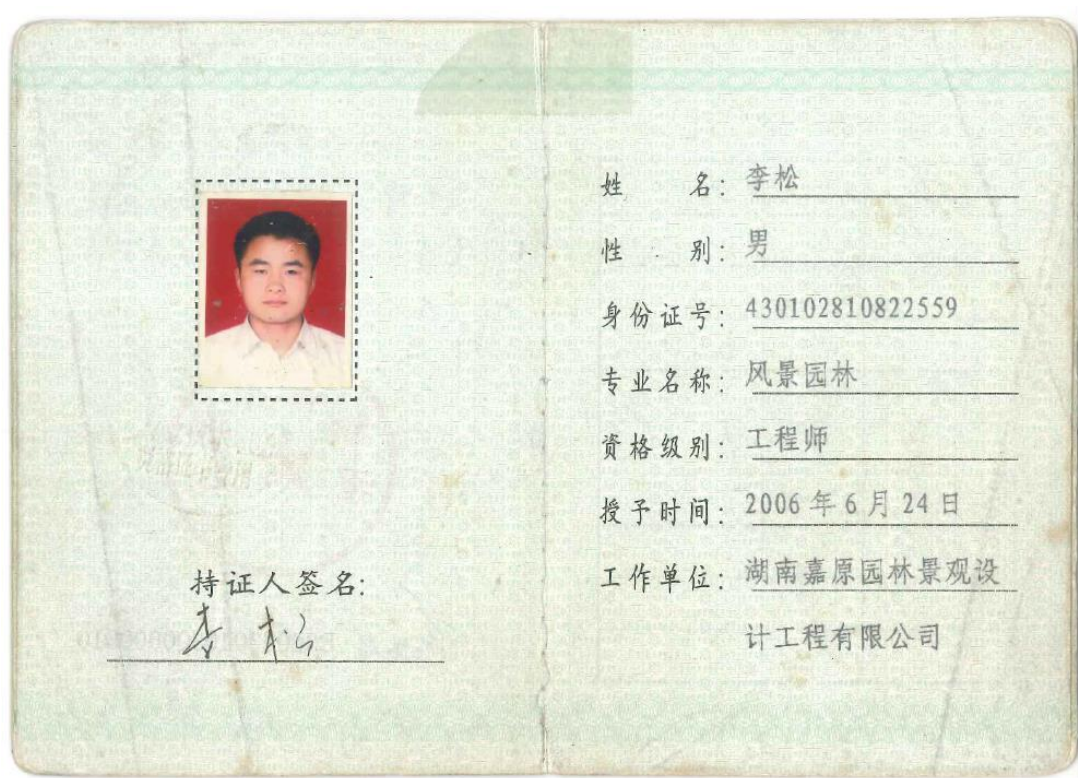 持证人签名:
李松
姓 名: 李松
性 别: 男
身份证号: 430102810822559
专业名称: 风景园林
资格级别: 工程师
授予时间: 2006 年 6 月 24 日
工作单位: 湖南嘉原园林景观设
计工程有限公司